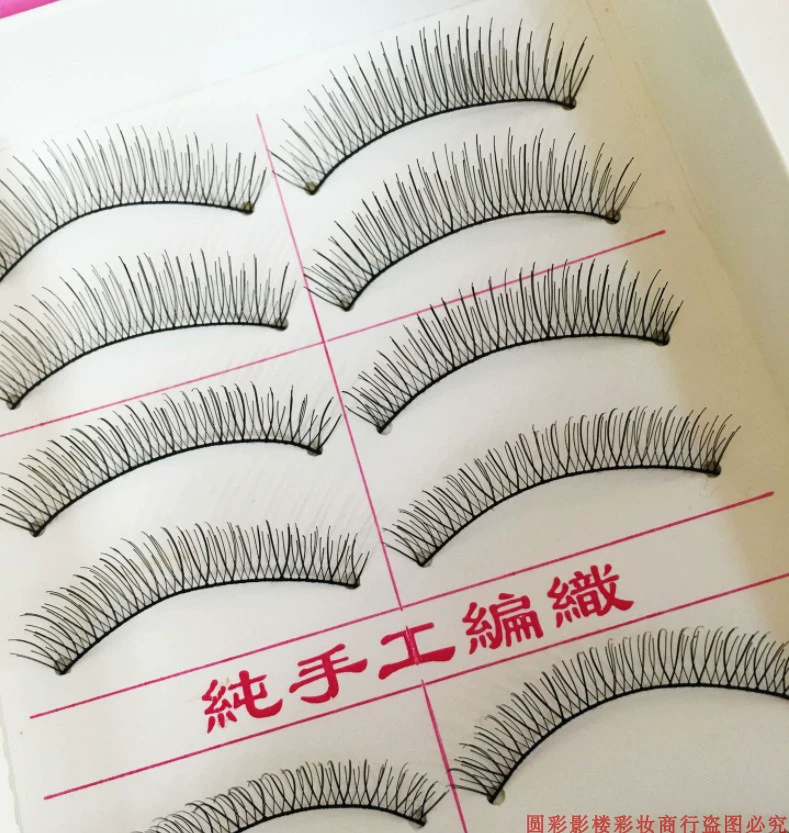 純手工編織
圆彩影楼彩妆商行盗图必究